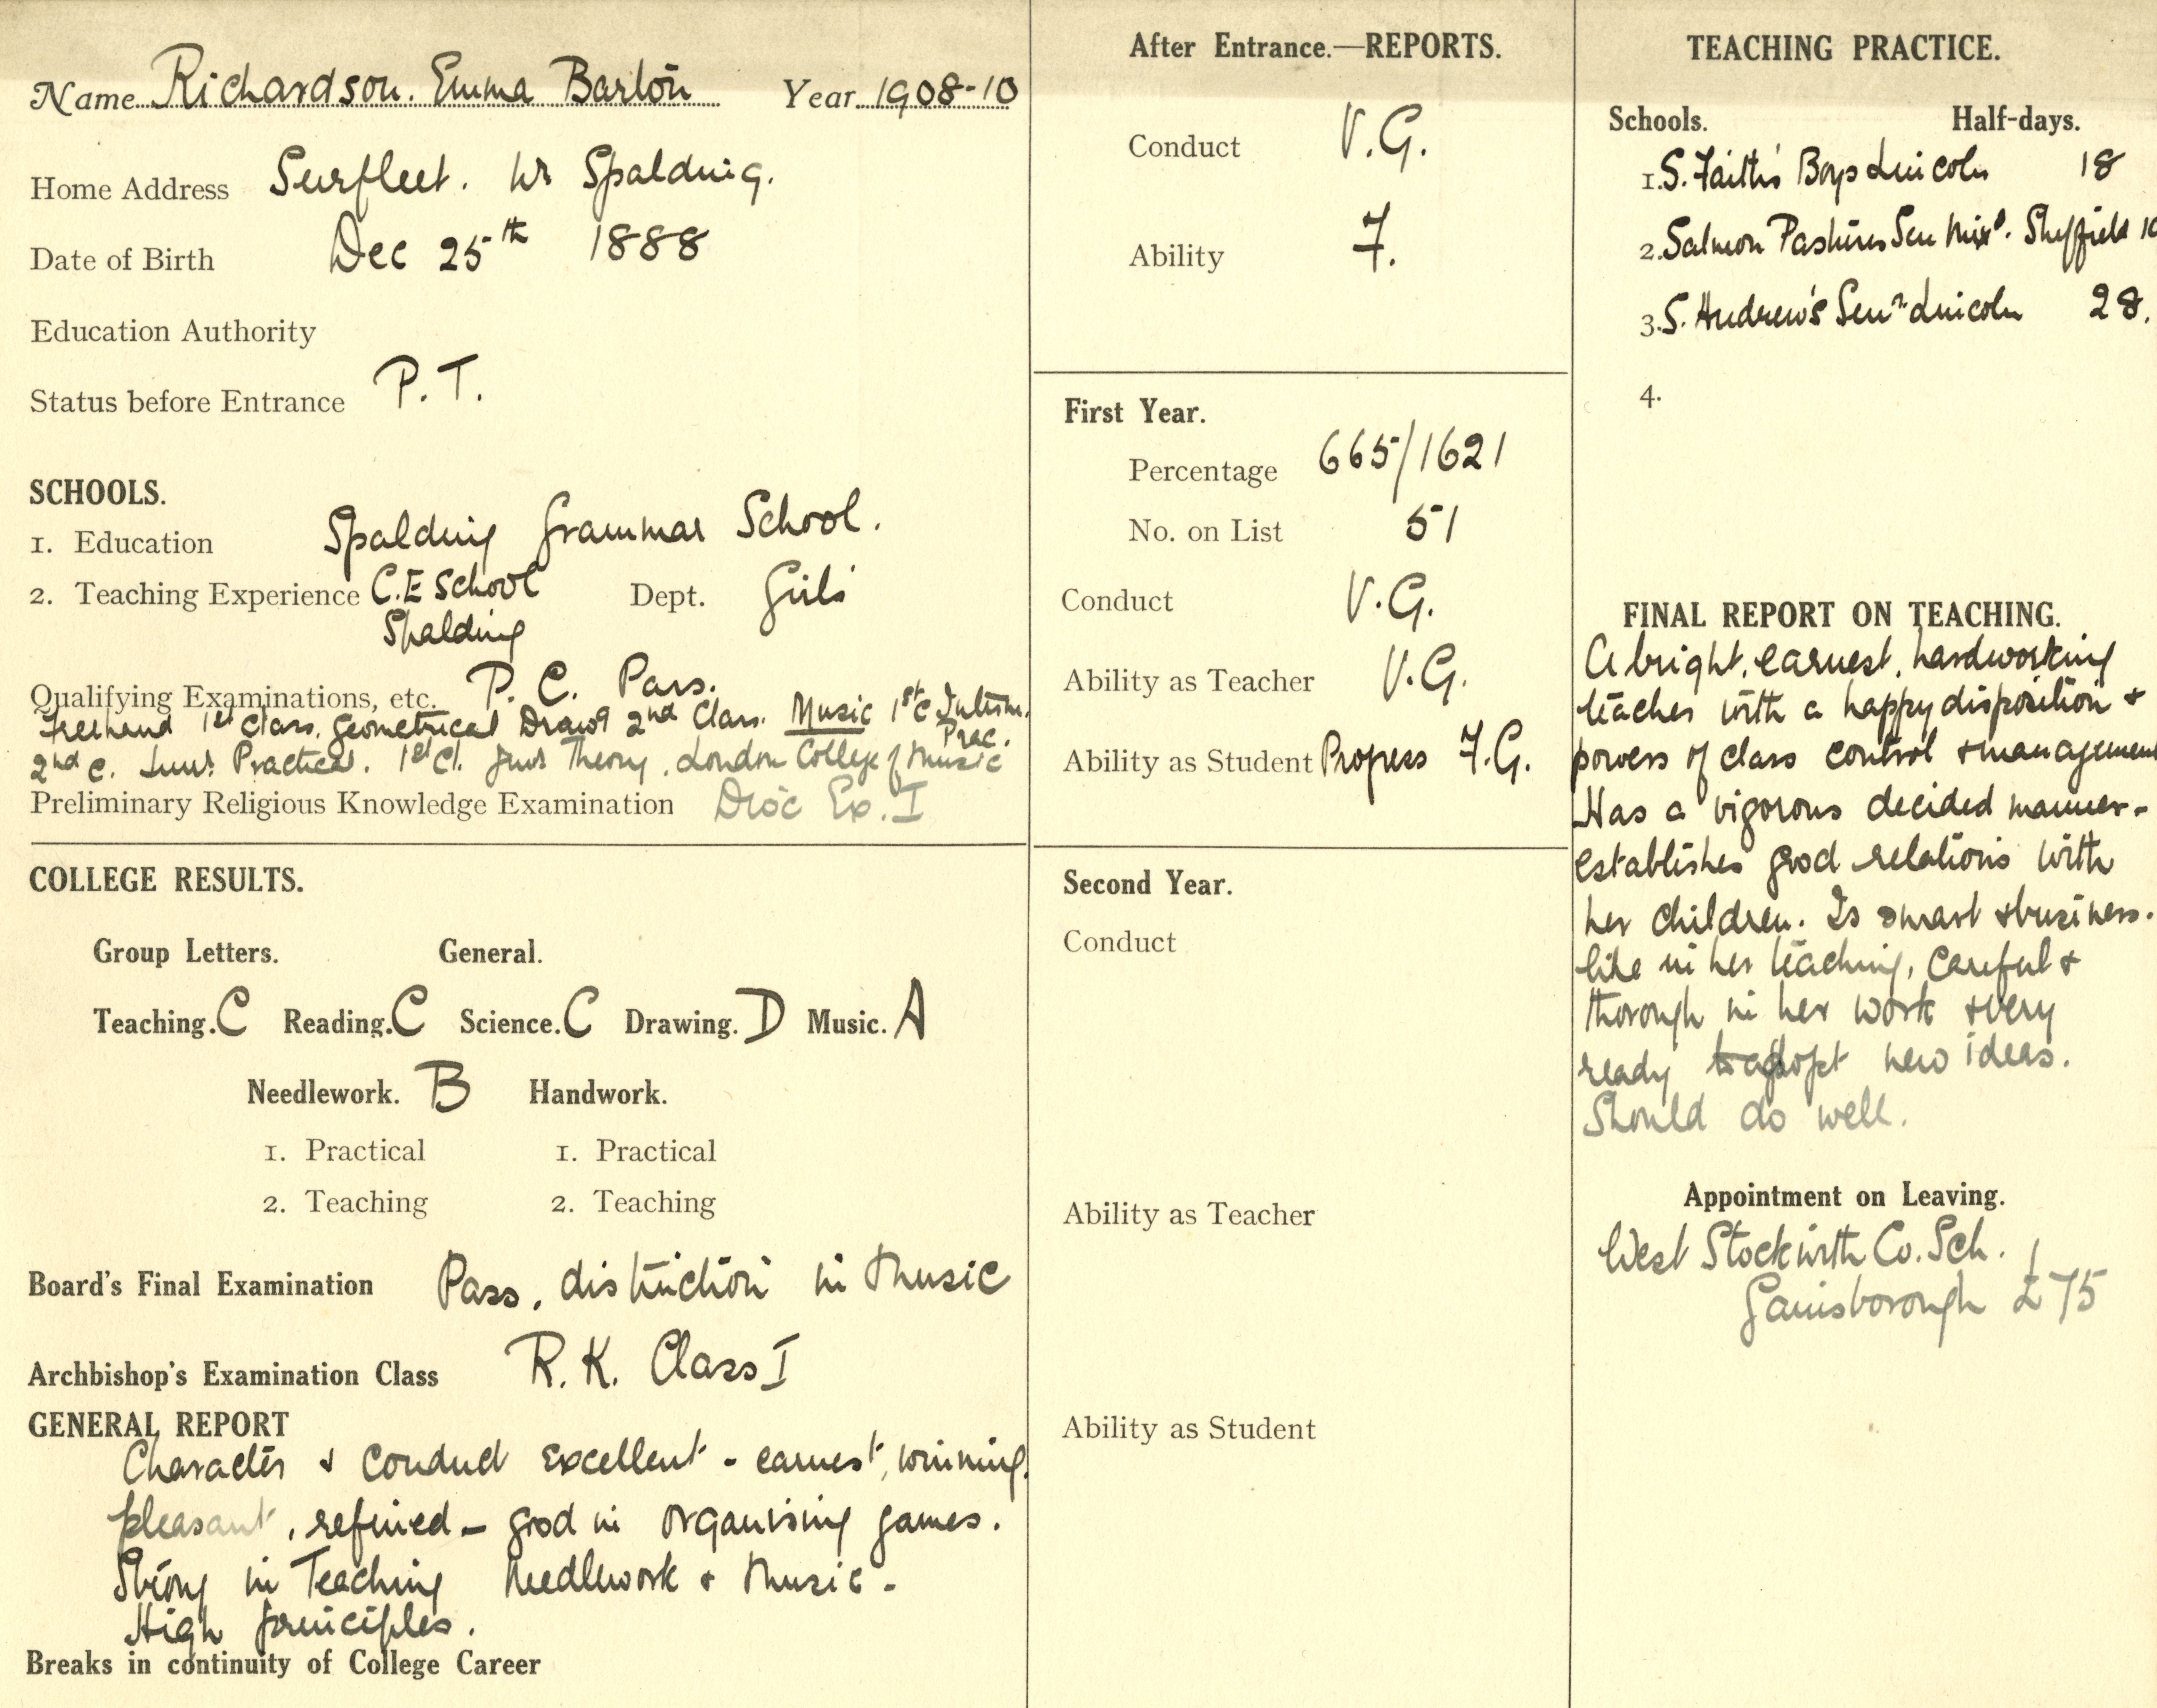 Name Richardson. Emma Barton Year 1908-10
Home Address Surfleet. Nr Spalding.
Date of Birth Dec 25th 1888
Education Authority
Status before Entrance P.T.
SCHOOLS.
1. Education Spalding Grammar School.
2. Teaching Experience C.E School Dept. Girls
Spalding
Qualifying Examinations, etc. P. C. Pass.
Freehand 1st Class. Geometrical Drawg 2nd Class. Music 1st C Interm.
Prac.
2nd C. Junr Practical. 1st Cl. Junr Theory. London College of Music
Preliminary Religious Knowledge Examination Dioc Ex. I
COLLEGE RESULTS.
Group Letters. General.
Teaching. C Reading. C Science. C Drawing. D Music. A
Needlework. B Handwork.
1. Practical 1. Practical
2. Teaching 2. Teaching
Board's Final Examination Pass, distinction in Music
Archbishop's Examination Class R.K. Class I
GENERAL REPORT
Character & Conduct excellent - earnest, winning,
pleasant, refined - good in organising games.
Strong in Teaching Needlework & Music -
High principles.
Breaks in continuity of College Career
After Entrance.—REPORTS.
Conduct V.G.
Ability F.
First Year.
Percentage 665/1621
No. on List 51
Conduct V.G.
Ability as Teacher V.G.
Ability as Student Progress F.G.
Second Year.
Conduct
Ability as Teacher
Ability as Student
TEACHING PRACTICE.
Schools. Half-days.
1. S. Faith's Boys Lincoln 18
2. Salmon Pastures Sen Mixd. Sheffield
3. S. Andrew's Senr Lincoln 28.
4.
FINAL REPORT ON TEACHING.
A bright, earnest, hardworking
teacher with a happy disposition &
powers of class control & management
Has a vigorous decided manner -
establishes good relations with
her children. Is smart & business-
like in her teaching, careful &
thorough in her work & very
ready to adopt new ideas.
Should do well.
Appointment on Leaving.
West Stockwith Co. Sch.
Gainsborough £75